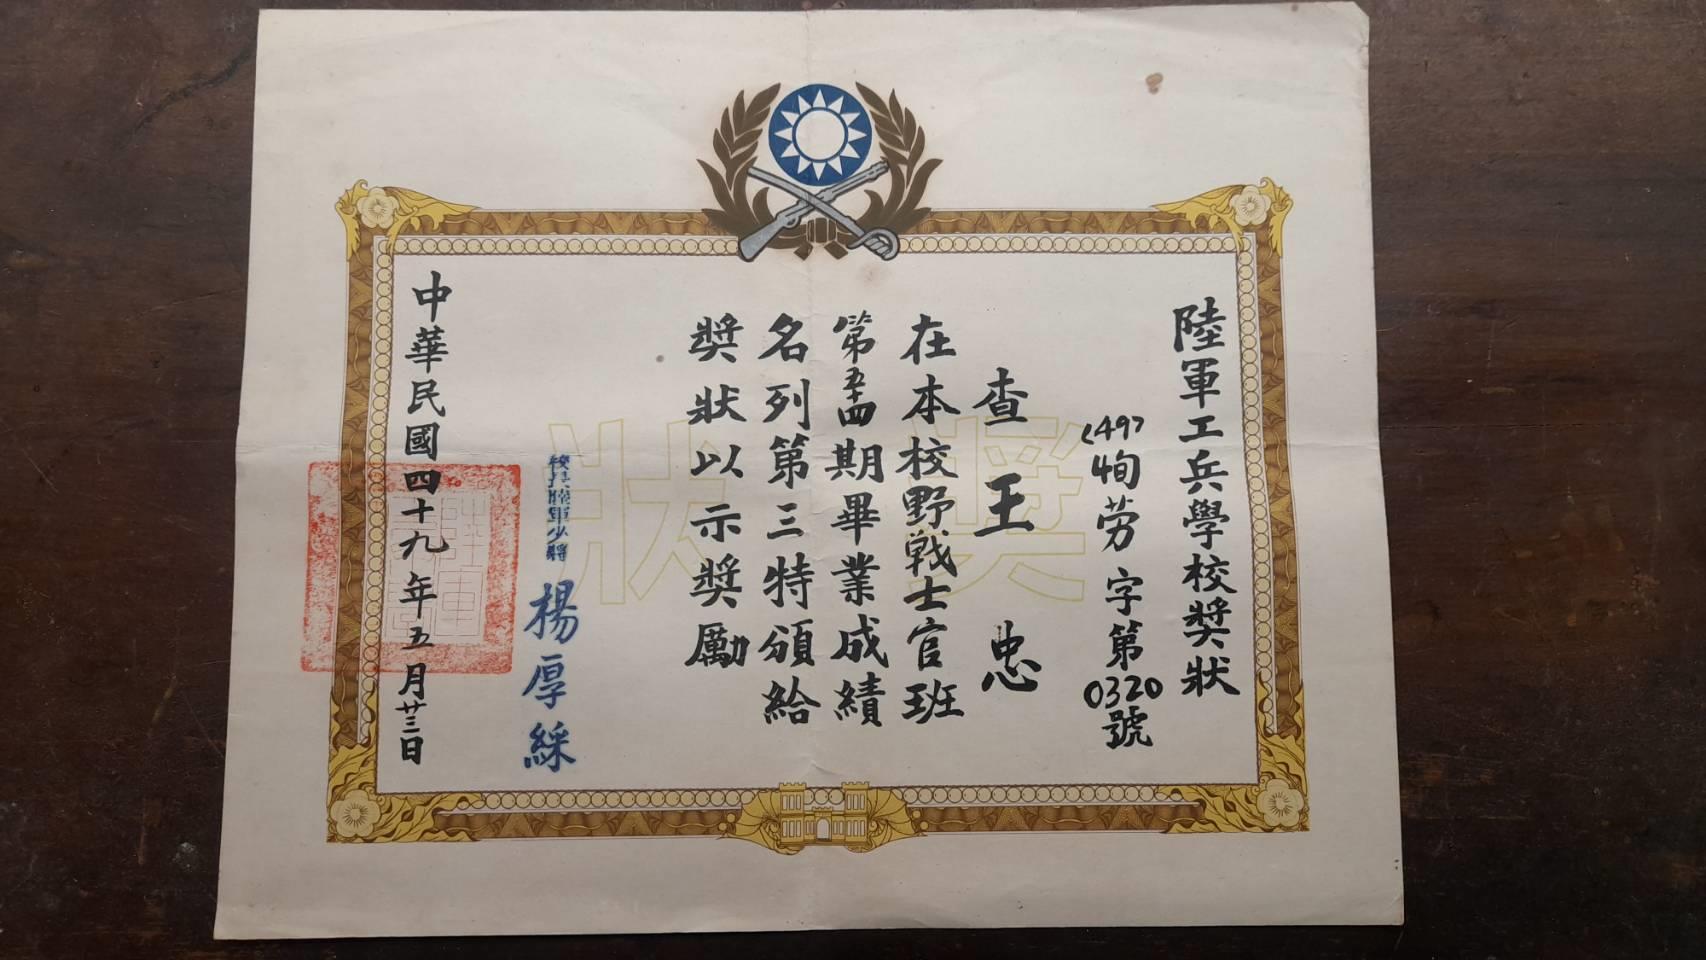 陸軍工兵學校獎狀
(49)
勞字第0320號
查王忠
在本校野戰士官班
第五十四期畢業成績
名列第三特頒給
獎狀以示獎勵
獎狀
校長陸軍少將
楊厚綵
中華民國四十九年五月廿三日